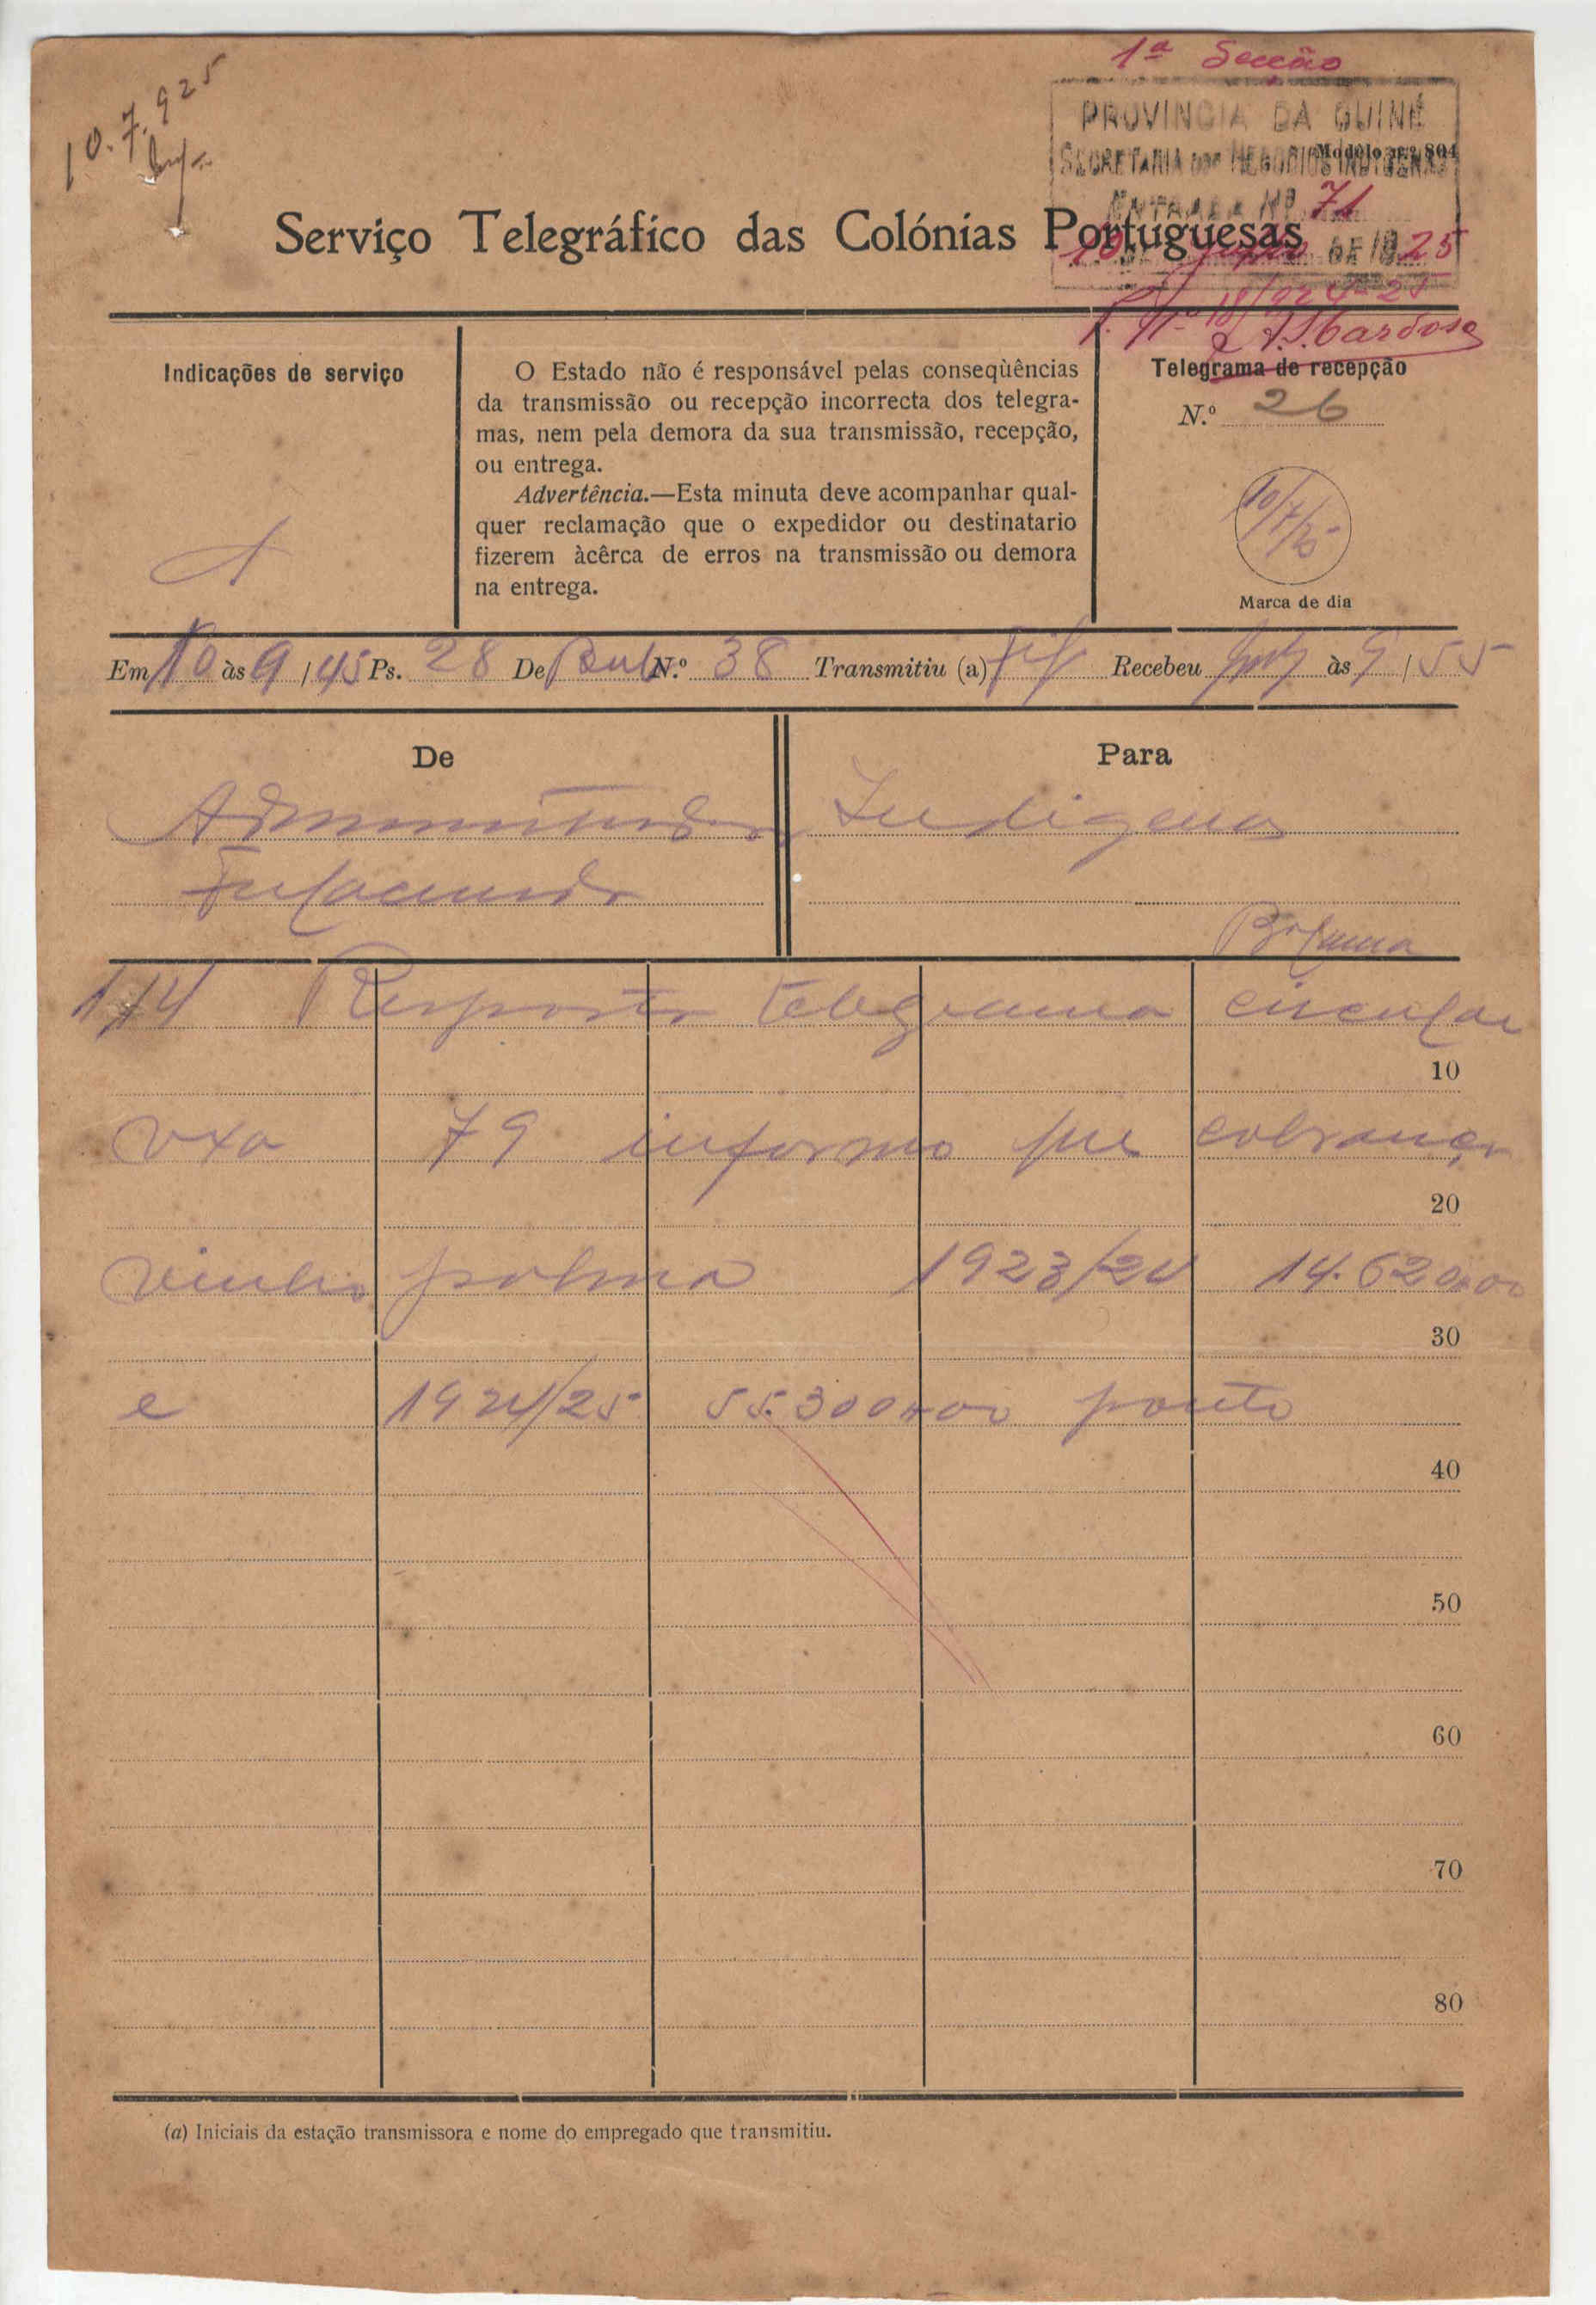 10.7.925
1ª Secção
PROVINCIA DA GUINÉ
Modêlo n.º 804
SECRETARIA DOS NEGOCIOS INDIGENAS
ENTRADA Nº 71
10 DE Julho DE 1925
P. Nº 18/924-25
Cardoso
Serviço Telegráfico das Colónias Portuguesas
Indicações de serviço
O Estado não é responsável pelas conseqüências
da transmissão ou recepção incorrecta dos telegra-
mas, nem pela demora da sua transmissão, recepção,
ou entrega.
Advertência.—Esta minuta deve acompanhar qual-
quer reclamação que o expedidor ou destinatario
fizerem àcêrca de erros na transmissão ou demora
na entrega.
Telegrama de recepção
N.º 26
10/7/25
Marca de dia
Em 10 às 9/45 Ps. 28 De N.º 38 Transmitiu (a) Recebeu às 9/55
De
Administrador
Fulacunda
Para
Indigenas
Bolama
114 Resposta telegrama circular
10
vxa 79 informo que cobrança
20
vinho palma 1923/24 14.620$00
30
e 1924/25 55.300$00 ponto
40
50
60
70
80
(a) Iniciais da estação transmissora e nome do empregado que transmitiu.